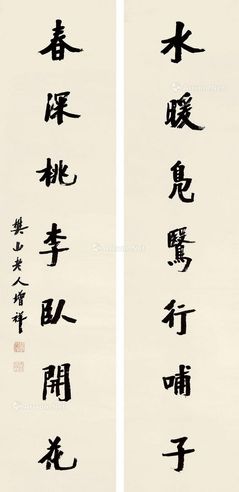 水暖凫鷖行哺子
春深桃李卧開花
樊山老人增祥